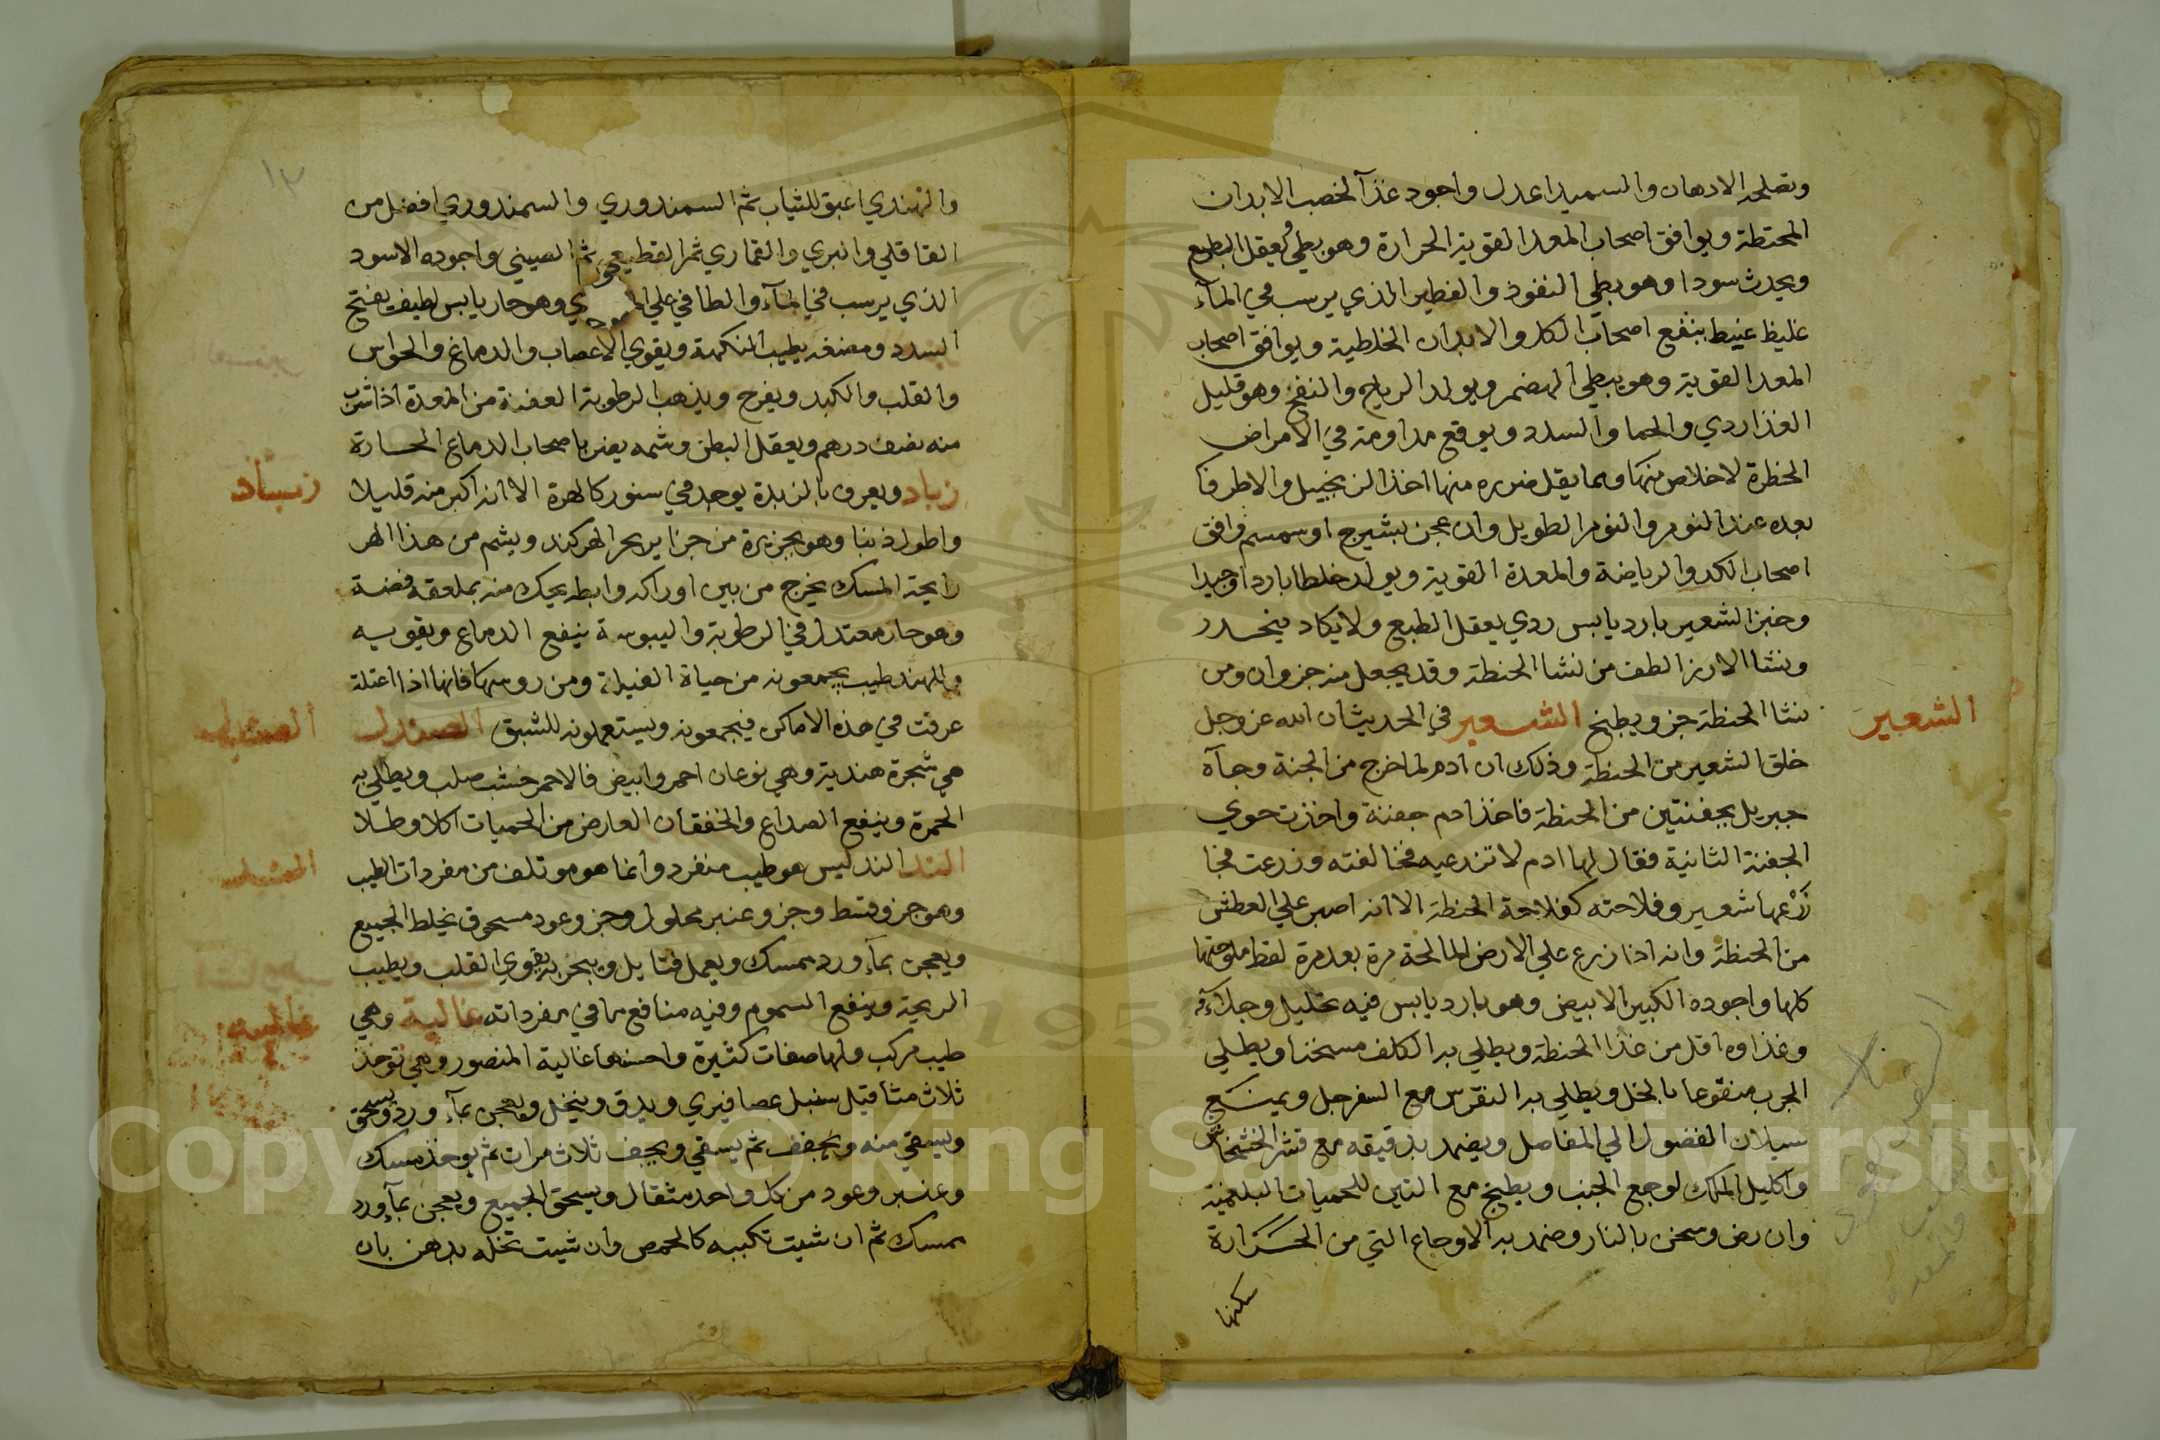 وتصلحه الادهان والسميد اعدل واجود غذآ لخصب الابدان
المحتطة ويوافق اصحاب المعد القوية الحرارة وهو بطي يعقل الطبع
ويحدث سودا وهو بطي النفوذ والفطير الذي يرسب في المآء
غليظ غبيط ينفع اصحاب الكد والابدان الخلطية ويوافق اصحاب
المعد القوية وهو بطي الهضم ويولد الرياح والنفخ وهو قليل
الغذا ردي والحما والسدد ويوقع مداومته في الامراض
الخطرة لا خلاص منها ومما يقل ضرره منها اخذ الزنجبيل والاطرفا
بعده عند النوم والنوم الطويل وان عجن بشيرج او سمسم وافق
اصحاب الكد والرياضة والمعدة القوية ويولد خلطا باردا وجيدا
وخبز الشعير بارد يابس ردي يعقل الطبع ولا يكاد ينحدر
ونشا الارز الطف من نشا الحنطة وقد يجعل منه جزوان ومن
نشا الحنطة جز ويطبخ الشعير في الحديث ان الله عز وجل
الشعير
خلق الشعير من الحنطة وذلك ان ادم لما خرج من الجنة وجآه
جبريل بجفنتين من الحنطة فاخذ ادم جفنة واخذت حوي
الجفنة الثانية فقال لها ادم لا تزرعيه فخالفته وزرعت فجا
زرعها شعير وفلاحته كفلاحة الحنطة الا انه اصبر علي العطش
من الحنطة وانه اذا زرع علي الارض المالحة مرة بعد مرة لقط ملوحتها
كلها واجوده الكبير الابيض وهو بارد يابس فيه تحليل وجلآء
وغذاوه اقل من غذا الحنطة ويطلي به الكلف مسخنا ويطلي
الجرب منقوعا بالخل ويطلي به النقرس مع السفرجل ويمنع
سيلان الفضول الي المفاصل ويضمد بدقيقه مع قشر الخشخاش
واكليل الملك لوجع الجنب ويطبخ مع التين للحميات البلغمية
وان رض وسخن بالنار وضمد به الاوجاع التي من الحرارة
سكنها
١٣
والهندي اعبق للثياب ثم السمندوري والسمندوري افضل من
القاقلي والبري والقماري ثم القطيعي ثم الصيني واجوده الاسود
الذي يرسب في المآء والطافي علي وهو حار يابس لطيف يفتح
السدد ومضغه يطيب النكهة ويقوي الاعصاب والدماغ والحواس
والقلب والكبد ويفرح ويذهب الرطوبة العفنة من المعدة اذا شرب
منه نصف درهم ويعقل البطن وشمه يضر باصحاب الدماغ الحارة
زباد
زباد ويعرف بالزبدة يوجد في سنور كالهرة الا انه اكبر منه قليلا
واطول ذنبا وهو بجزيرة من جزاير بحر الهركند ويشم من هذا الهر
رايحة المسك يخرج من بين اوراكه وابطه يحك منه بملعقة فضة
وهو حار معتدل في الرطوبة واليبوسة ينفع الدماغ ويقويه
وللهند طيب يجمعونه من حياة الفيلة ومن روسها فانها اذا اعتلة
عرقت في هذه الاماكن فيجمعونه ويستعملونه للشبق الصندل
الصندل
هي شجرة هندية وهي نوعان احمر وابيض فالاحمر خشب صلب ويطلي به
الحمرة وينفع الصداع والخفقان العارض من الحميات اكلا وطلا
الند الند ليس هو طيب منفرد وانما هو موتلف من مفردات الطيب
وهو جز وقسط وجز وعنبر محلول وجز وعود مسحوق يخلط الجميع
ويعجن بمآء ورد بمسك ويعمل فتايل ويبخر به يقوي القلب ويطيب
الريحة وينفع السموم وفيه منافع ما في مفرداته غالية وهي
غالية
طيب مركب ولها صفات كثيرة واحسنها غالية المنصور وهي توخذ
ثلاث مثاقيل سنبل عصافيري ويدق وينخل ويعجن بمآء ورد ويسحق
ويسقي منه ويجفف ثم يسقي ويجفف ثلاث مرات ثم يوخذ مسك
وعنبر وعود من كل واحد مثقال ويسحق الجميع ويعجن بمآء ورد
بمسك ثم ان شيت تكببه كالحمص وان شيت تخله بدهن بان
Copyright © King Saud University
195